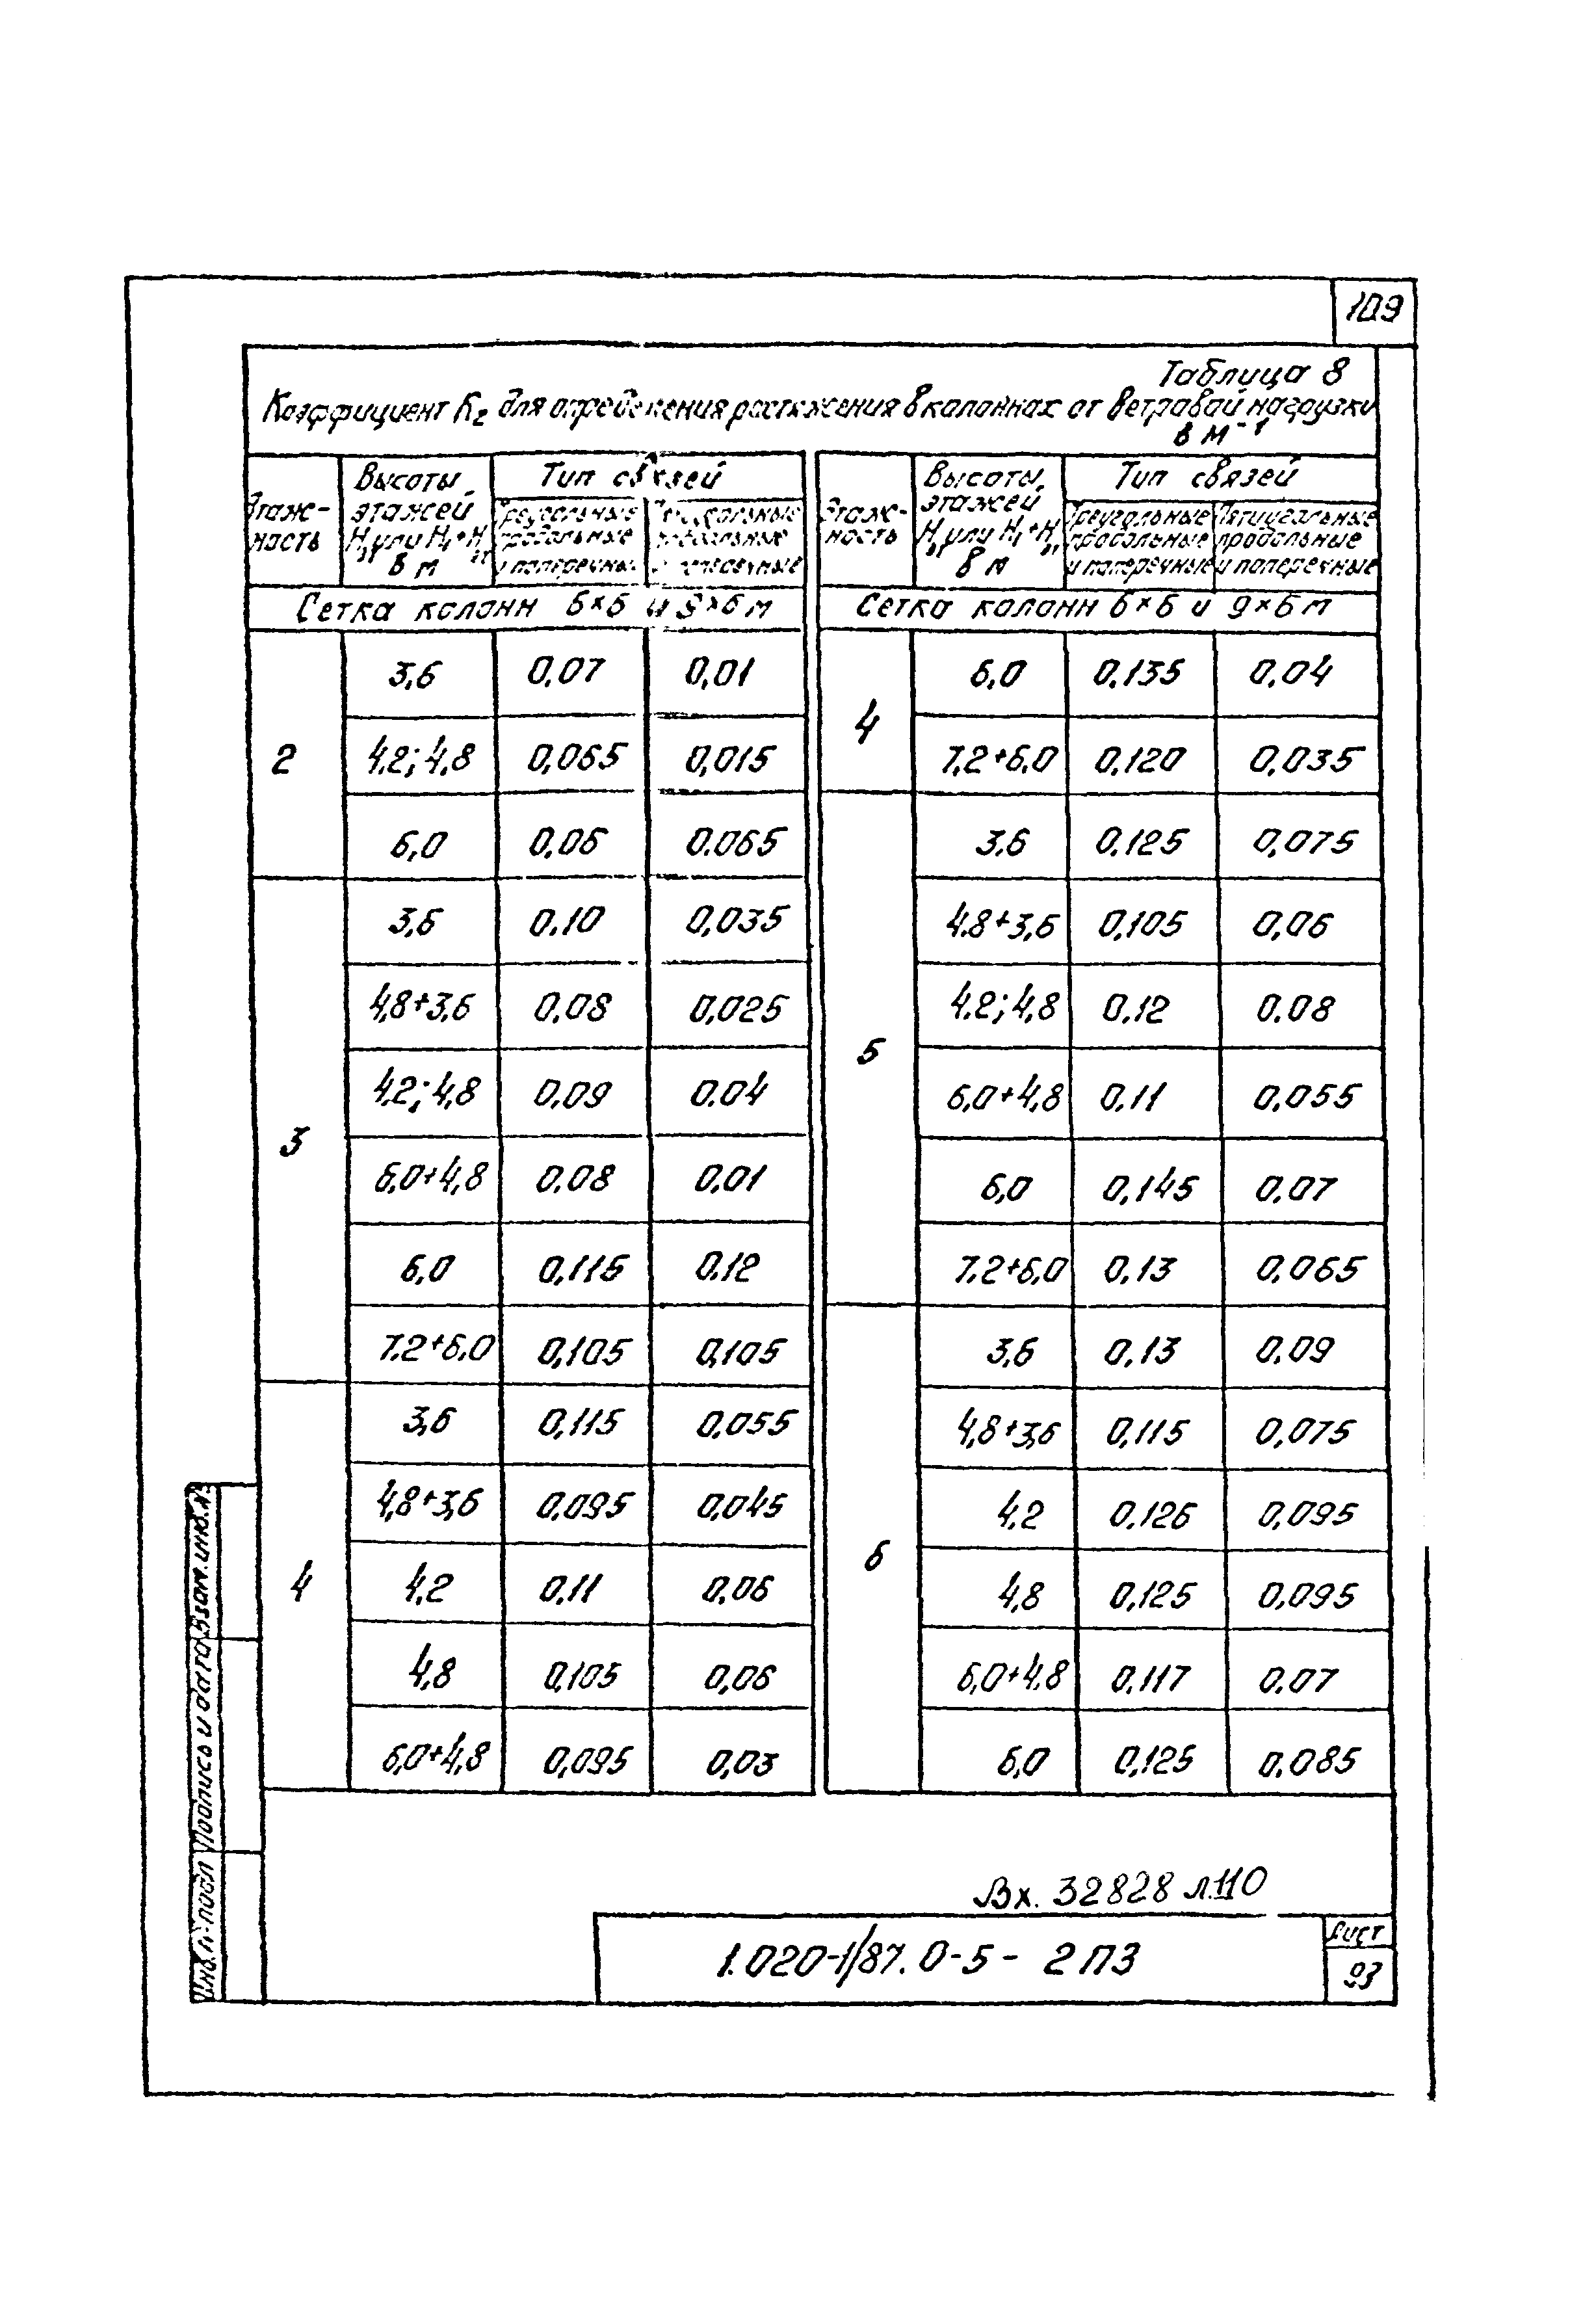 109
Таблица 8
Коэффициент K₂ для определения растяжения в колоннах от ветровой нагрузки
в м⁻¹
Этаж-
ность
Высоты
этажей
Hэт или H₁+Hэт
в м
Тип связей
Треугольные
продольные
и поперечные
продольные
Сетка колонн 6×6 и 9×6 м
2
3,6 0,07 0,01
4.2; 4.8 0,065 0,015
6,0 0,06 0.065
3
3,6 0.10 0,035
4,8+3,6 0,08 0,025
4.2; 4,8 0.09 0.04
6,0+4,8 0.08 0.01
6,0 0,115 0.12
7.2+6.0 0,105 0,105
4
3,6 0,115 0,055
4,8+3,6 0,095 0,045
4.2 0,11 0,06
4,8 0,105 0,06
6,0+4,8 0,095 0,03
Этаж-
ность
Высоты
этажей
Hэт или H₁+Hэт
в м
Тип связей
Треугольные
продольные
и поперечные
Пятиугольные
продольные
и поперечные
Сетка колонн 6×6 и 9×6 м
4
6,0 0.135 0.04
7.2+6.0 0,120 0,035
5
3.6 0.125 0,075
4.8+3,6 0,105 0,06
4.2; 4,8 0.12 0.08
6,0+4,8 0.11 0,055
6,0 0,145 0.07
7.2+6,0 0.13 0,065
6
3,6 0.13 0.09
4,8+3,6 0,115 0,075
4,2 0.126 0,095
4,8 0,125 0,095
6,0+4.8 0,117 0.07
6,0 0,125 0.085
Взам. инв. №
Подпись и дата
Инв. № подл
Вх. 32828 л.110
1.020-1/87. 0-5- 2ПЗ
Лист
93